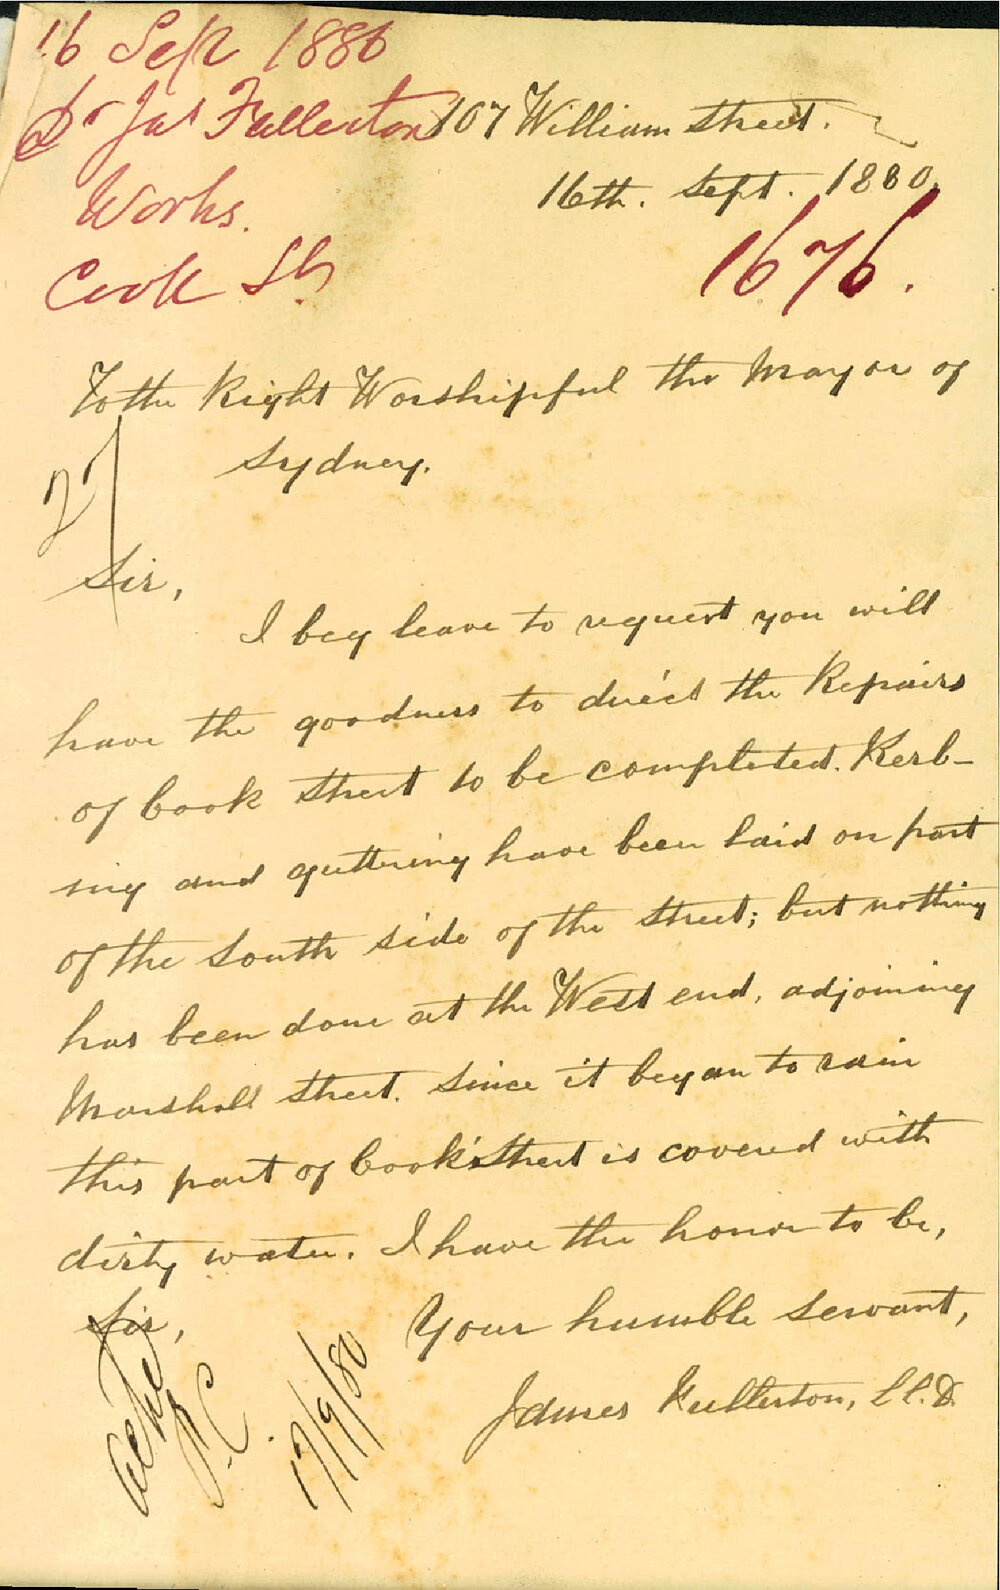 16 Sep 1880
Dr Jas Fullerton
Works.
Cook St
107 William Street.
16th. Sept. 1880.
1676.
To the Right Worshipful the Mayor of
Sydney.
Sir,
I beg leave to request you will
have the goodness to direct the Repairs
of Cook Street to be completed. Kerb-
ing and guttering have been laid on part
of the South side of the Street; but nothing
has been done at the West end, adjoining
Marshall Street. Since it began to rain
this part of Cook Street is covered with
dirty water. I have the honor to be,
Sir,
Your humble Servant,
James Fullerton, LL.D.
P.C.
17/9/80